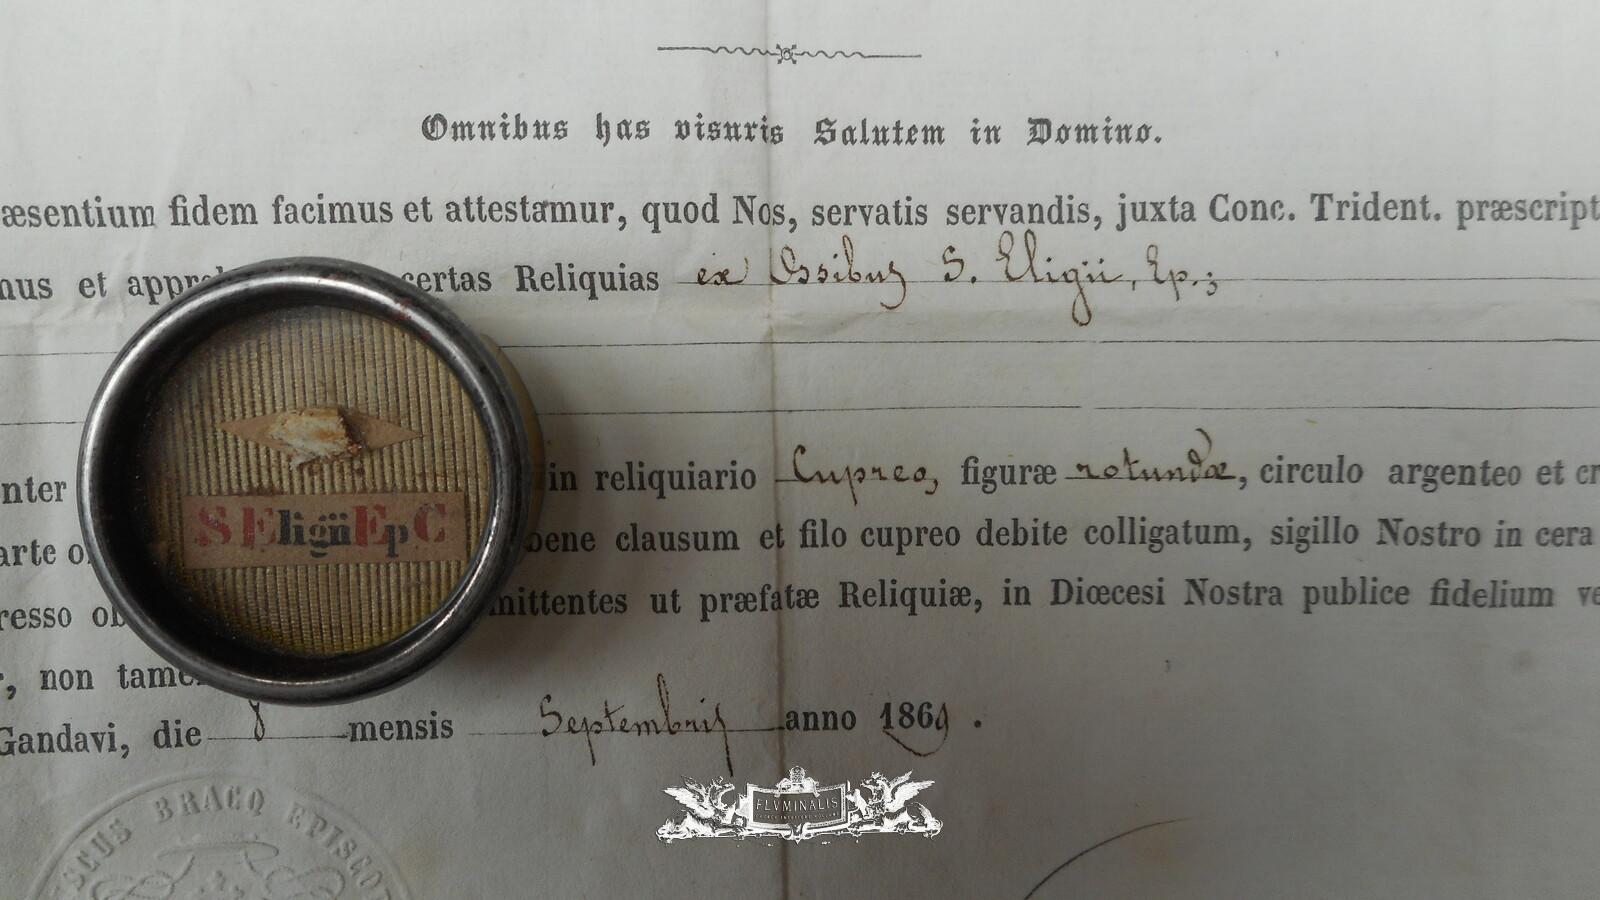 Omnibus has visuris Salutem in Domino.
æsentium fidem facimus et attestamur, quod Nos, servatis servandis, juxta Conc. Trident. præscript
nus et appro certas Reliquias ex Ossibus S. Eligii, Ep.;
nter in reliquiario Cupreo, figuræ rotundæ, circulo argenteo et cr
arte o bene clausum et filo cupreo debite colligatum, sigillo Nostro in cera
resso ob mittentes ut præfatæ Reliquiæ, in Diœcesi Nostra publice fidelium ve
, non tame
Gandavi, die 8 mensis Septembris anno 1869.
S EligiiEp C
SCUS BRACQ EPISCO
FLVMINALIS